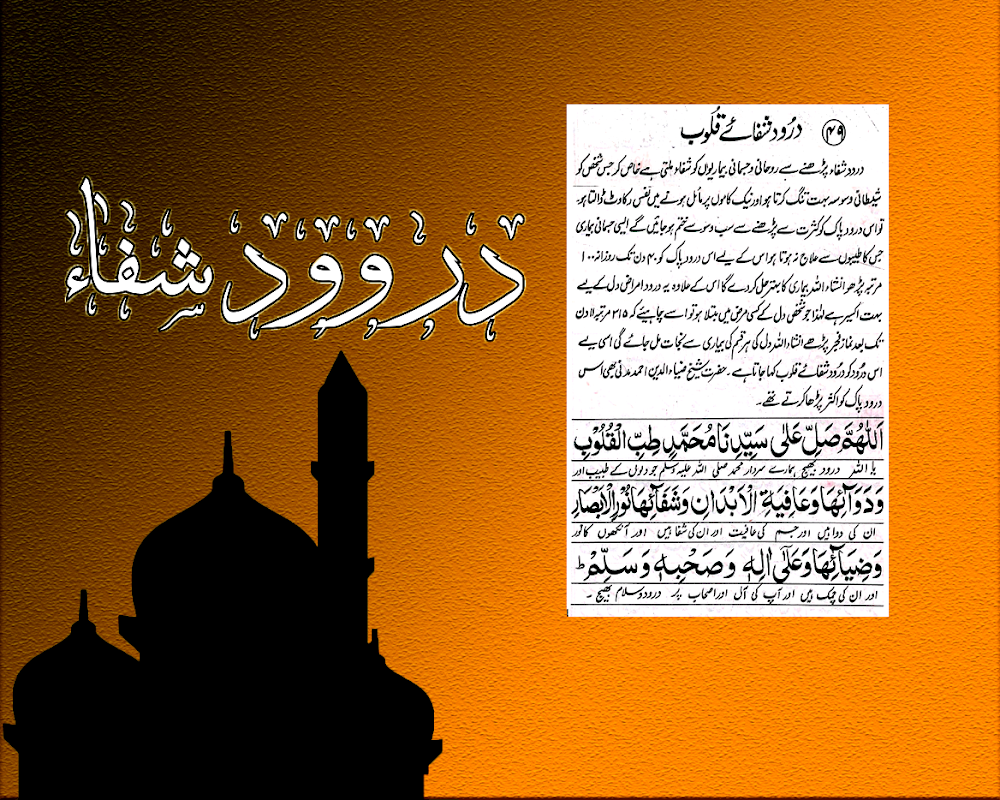 درود شفاء
۴۹ درُود شفائے قلوب
درود شفاء پڑھنے سے روحانی وجسمانی بیماریوں کو شفاء ملتی ہے خاص کر جس شخص کو
شیطانی وسوسہ بہت تنگ کرتا ہو اور نیک کاموں پر مائل ہونے میں نفس رکاوٹ ڈالتا ہو۔
تو اس درود پاک کو کثرت سے پڑھنے سے سب وسوسے ختم ہو جائیں گے ایسی جسمانی بیماری
جس کا طبیبوں سے علاج نہ ہوتا ہو اس کے لیے اس درود پاک کو ۴۰ دن تک روزانہ ۱۰۰
مرتبہ پڑھو انشاء اللہ بیماری کا بہتر حل کر دے گا اس کے علاوہ یہ درود امراض دل کے لیے
بہت اکسیر ہے لہٰذا جو شخص دل کے کسی مرض میں مبتلا ہو تو اسے چاہیئے کہ ۲۱۵ مرتبہ دن
تک بعد نماز فجر پڑھے انشاء اللہ دل کی ہر قسم کی بیماری سے نجات مل جائے گی اسی لیے
اس درُود کو درُود شفائے قلوب کہا جاتا ہے۔ حضرت شیخ ضیاء الدین احمد مدنی بھی اس
درود پاک کو اکثر پڑھا کرتے تھے۔
اَللّٰهُمَّ صَلِّ عَلٰى سَيِّدِنَا مُحَمَّدٍ طِبِّ الْقُلُوْبِ
یا اللہ درود بھیج ہمارے سردار محمد صلی اللہ علیہ وسلم جو دلوں کے طبیب اور
وَدَوَآئِهَا وَعَافِيَةِ الْاَبْدَانِ وَشَفَآئِهَا نُوْرِ الْاَبْصَارِ
ان کی دوا ہیں اور جسم کی عافیت اور ان کی شفا ہیں اور آنکھوں کا نور
وَضِيَآئِهَا وَعَلٰى اٰلِهٖ وَصَحْبِهٖ وَسَلِّمْ ط
اور ان کی چمک ہیں اور آپ کی آل اور اصحاب پر درود وسلام بھیج۔